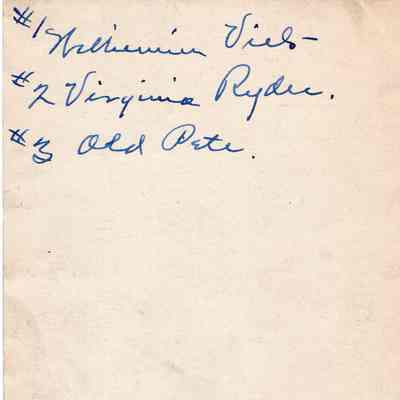 #1 Wilhemina Viets
#2 Virginia Ryder.
#3 Old Pete.